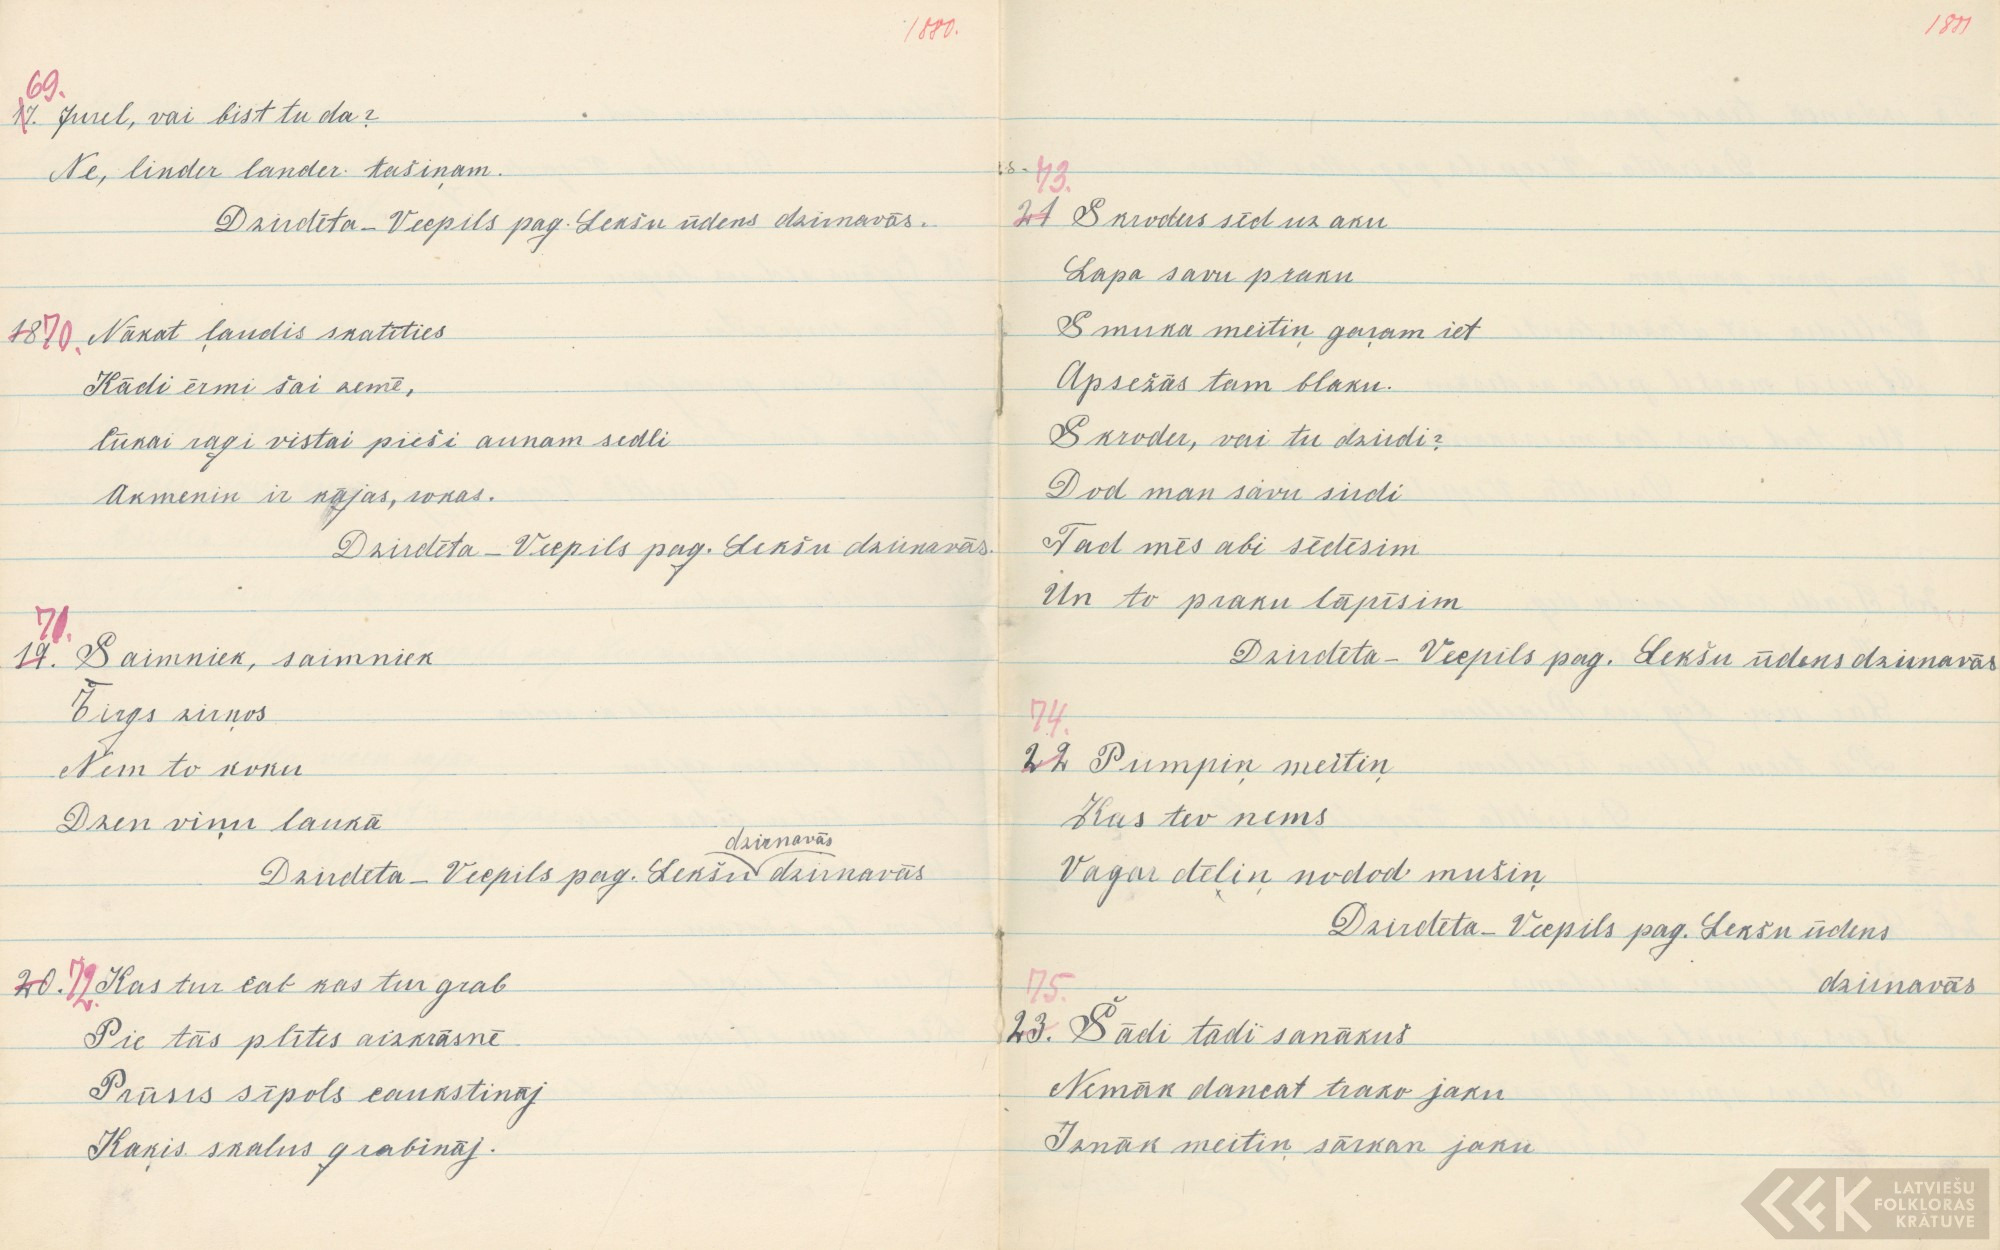 1880.
69.
17. Jurel, vai bist tu da?
Ne, linder lander tašiņam.
Dzirdēta – Vecpils pag. Lekšu ūdens dzirnavās.
18 70. Nākat ļaudis skatīties
Kādi ērmi šai zemē,
Cūkai ragi vistai pieši aunam sedli
Akmenin ir kājas, rokas.
Dzirdēta – Vecpils pag. Lekšu dzirnavās.
71.
19. Saimniek, saimniek
Zirgs zirņos
Nem to koku
Dzen viņu laukā
dzirnavās
Dzirdēta – Vecpils pag. Lekšu dzirnavās
20. 72. Kas tur čab kas tur grab
Pie tās plītes aizkrāsnē
Prūsis sīpols caukstināj
Kaķis skalus grabināj.
1881
73.
21 Skroders sēd uz aku
Lapa savu praku
Smuka meitiņ gaŗam iet
Apsežās tam blaku.
Skroder, vai tu dzirdi?
Dod man savu sirdi
Tad mēs abi sēdēsim
Un to praku lāpīsim
Dzirdēta – Vecpils pag. Lekšu ūdens dzirnavās
74.
22 Pumpiņ meitiņ
Kas tev nems
Vagar dēliņ nodod mušiņ
Dzirdēta – Vecpils pag. Lekšu ūdens
dzirnavās
75.
23. Šādi tādi sanākuš
Nemāk dancat trako jaku
Iznāk meitiņ sārkan jaku
LATVIEŠU
FOLKLORAS
KRĀTUVE